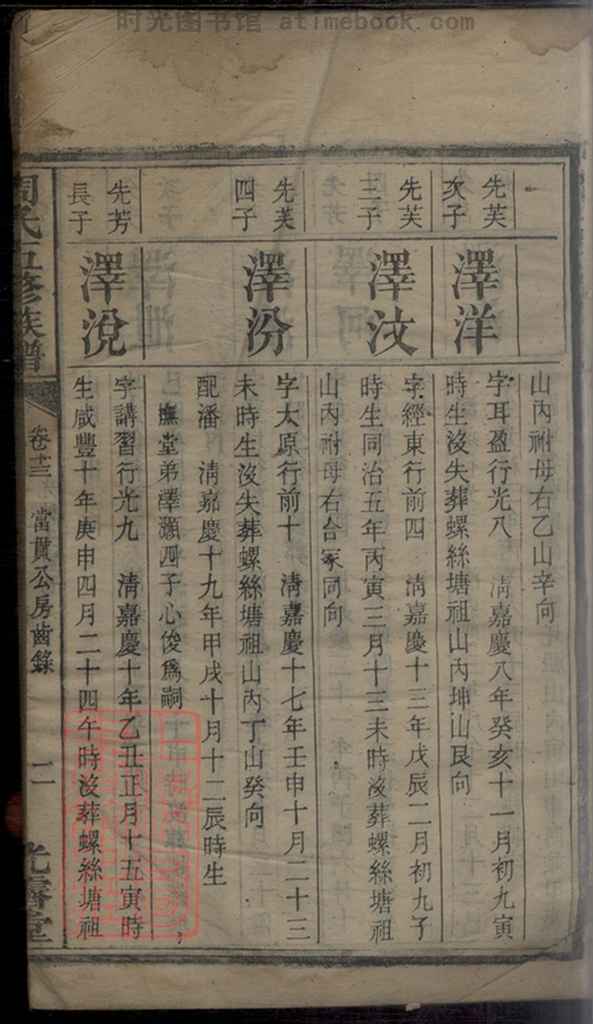 时光图书馆 - atimebook.com
山內祔母右乙山辛向
先芙
次子
澤洋
字耳盈行光八 淸嘉慶八年癸亥十一月初九寅
時生沒失葬螺絲塘祖山內坤山艮向
先芙
三子
澤汶
字經東行前四 淸嘉慶十三年戊辰二月初九子
時生同治五年丙寅三月十三未時沒葬螺絲塘祖
山內祔母右合冢同向
先芙
四子
澤汾
字太原行前十 淸嘉慶十七年壬申十月二十三
未時生沒失葬螺絲塘祖山內丁山癸向
配潘 淸嘉慶十九年甲戌十月十二辰時生
撫堂弟澤灝四子心俊爲嗣
先芳
長子
澤渷
字講習行光九 淸嘉慶十年乙丑正月十五寅時
生咸豐十年庚申四月二十四午時沒葬螺絲塘祖
周氏五修族譜
卷十三 當貫公房齒錄
二
光霽堂